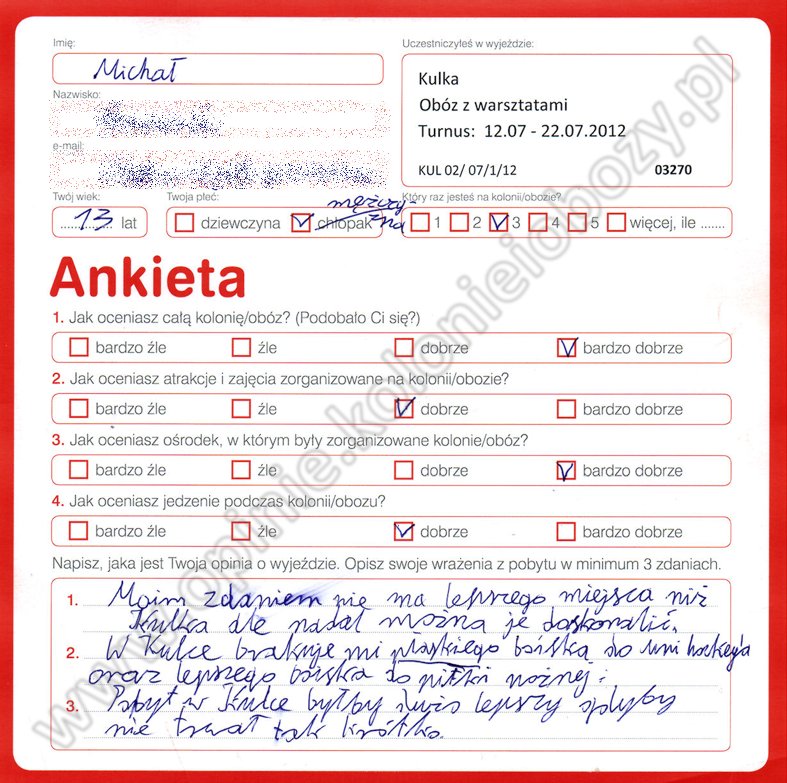 Imię:
Michał
Uczestniczyłeś w wyjeździe:
Kulka
Obóz z warsztatami
Turnus: 12.07 - 22.07.2012
KUL 02/ 07/1/12 03270
Nazwisko:
e-mail:
Twój wiek:
13 lat
Twoja płeć:
dziewczyna chłopak mężczyzna
Który raz jesteś na kolonii/obozie?
1 2 3 4 5 więcej, ile .......
Ankieta
1. Jak oceniasz całą kolonię/obóz? (Podobało Ci się?)
bardzo źle źle dobrze bardzo dobrze
2. Jak oceniasz atrakcje i zajęcia zorganizowane na kolonii/obozie?
bardzo źle źle dobrze bardzo dobrze
3. Jak oceniasz ośrodek, w którym były zorganizowane kolonie/obóz?
bardzo źle źle dobrze bardzo dobrze
4. Jak oceniasz jedzenie podczas kolonii/obozu?
bardzo źle źle dobrze bardzo dobrze
Napisz, jaka jest Twoja opinia o wyjeździe. Opisz swoje wrażenia z pobytu w minimum 3 zdaniach.
1. Moim zdaniem nie ma lepszego miejsca niż
Kulka ale nadal można je doskonalić.
2. W Kulce brakuje mi płaskiego boiska do uni hokeja
oraz lepszego boiska do piłki nożnej.
3. Pobyt w Kulce byłby dużo lepszy gdyby
nie trwał tak krótko.
www.opinie.kolonieiobozy.pl